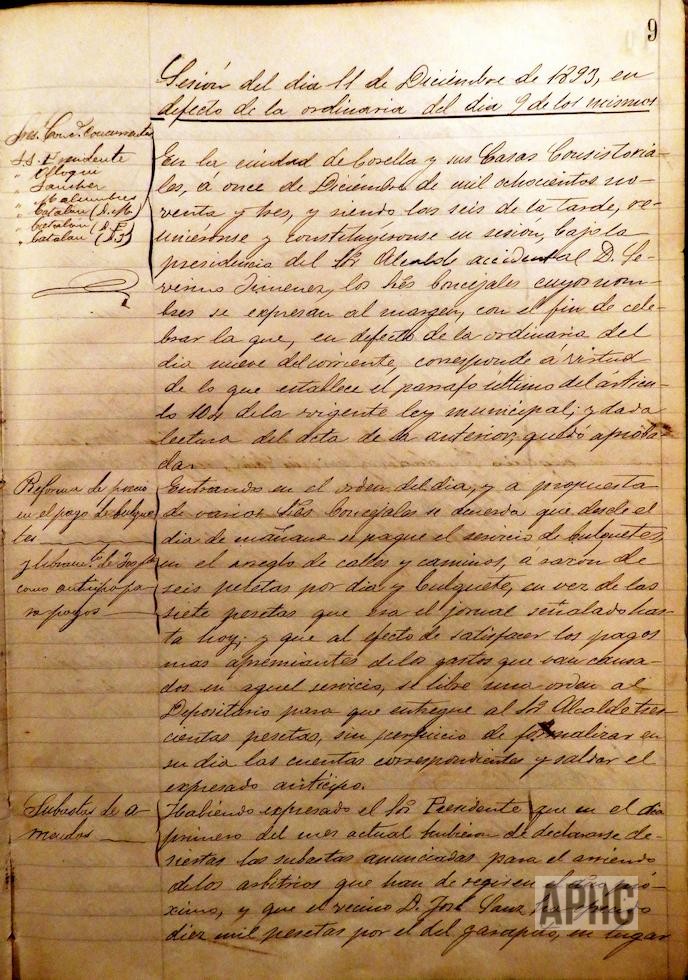 9
Sesión del dia 11 de Diciembre de 1893, en
defecto de la ordinaria del dia 9 de los mismos
Sres. Conc.s Concurrentes
S.S. Presidente
" Ologui
" Sanchez
" Malumbres
" Catalán (D. M.)
" Catalán (D. F.)
" Catalán (D. J.)
En la ciudad de Corella y sus Casas Consistoria-
les, á once de Diciembre de mil ochocientos no-
venta y tres, y siendo las seis de la tarde, re-
uniéronse y constituyéronse en sesion, bajo la
presidencia del Sr. Alcalde accidental D. Se-
verino Jimenez, los Sres Concejales cuyos nom-
bres se expresan al margen, con el fin de cele-
brar la que, en defecto de la ordinaria del
dia nueve del corriente, corresponde á virtud
de lo que establece el párrafo ultimo del articu-
lo 104 de la vigente ley municipal; y dada
lectura del acta de la anterior, quedó aproba-
da.
Reforma de precio
en el pago de bulque-
tes
y libram.to de 300 pts
como anticipo pa-
ra pagos
Entrando en el orden del dia, y a propuesta
de varios Sres Concejales se acuerda que desde el
dia de mañana se pague el servicio de bulquetes,
en el arreglo de calles y caminos, á razon de
seis pesetas por dia y bulquete, en vez de las
siete pesetas que era el jornal señalado has-
ta hoy; y que al efecto de satisfacer los pagos
mas apremiantes de los gastos que van causa-
dos en aquel servicio, se libre una orden al
Depositario para que entregue al Sr. Alcalde tres-
cientas pesetas, sin perjuicio de formalizar en
su dia las cuentas correspondientes y saldar el
expresado anticipo.
Subastas de a-
rriendos
Habiendo expresado el Sor Presidente que en el dia
primero del mes actual hubieron de declararse de-
siertas las subastas anunciadas para el arriendo
de los arbitrios que han de regir en el año pró-
ximo, y que el vecino D. José Sanz,
diez mil pesetas por el del garapito, en lugar
APHC